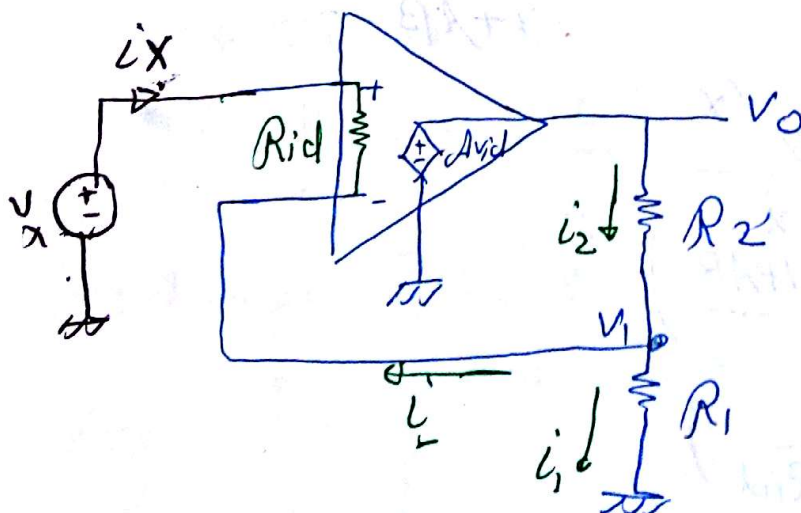 ix
+
Rid
-
+
-
Avid
Vo
+
-
Vx
i2
R2
V1
i-
i1
R1